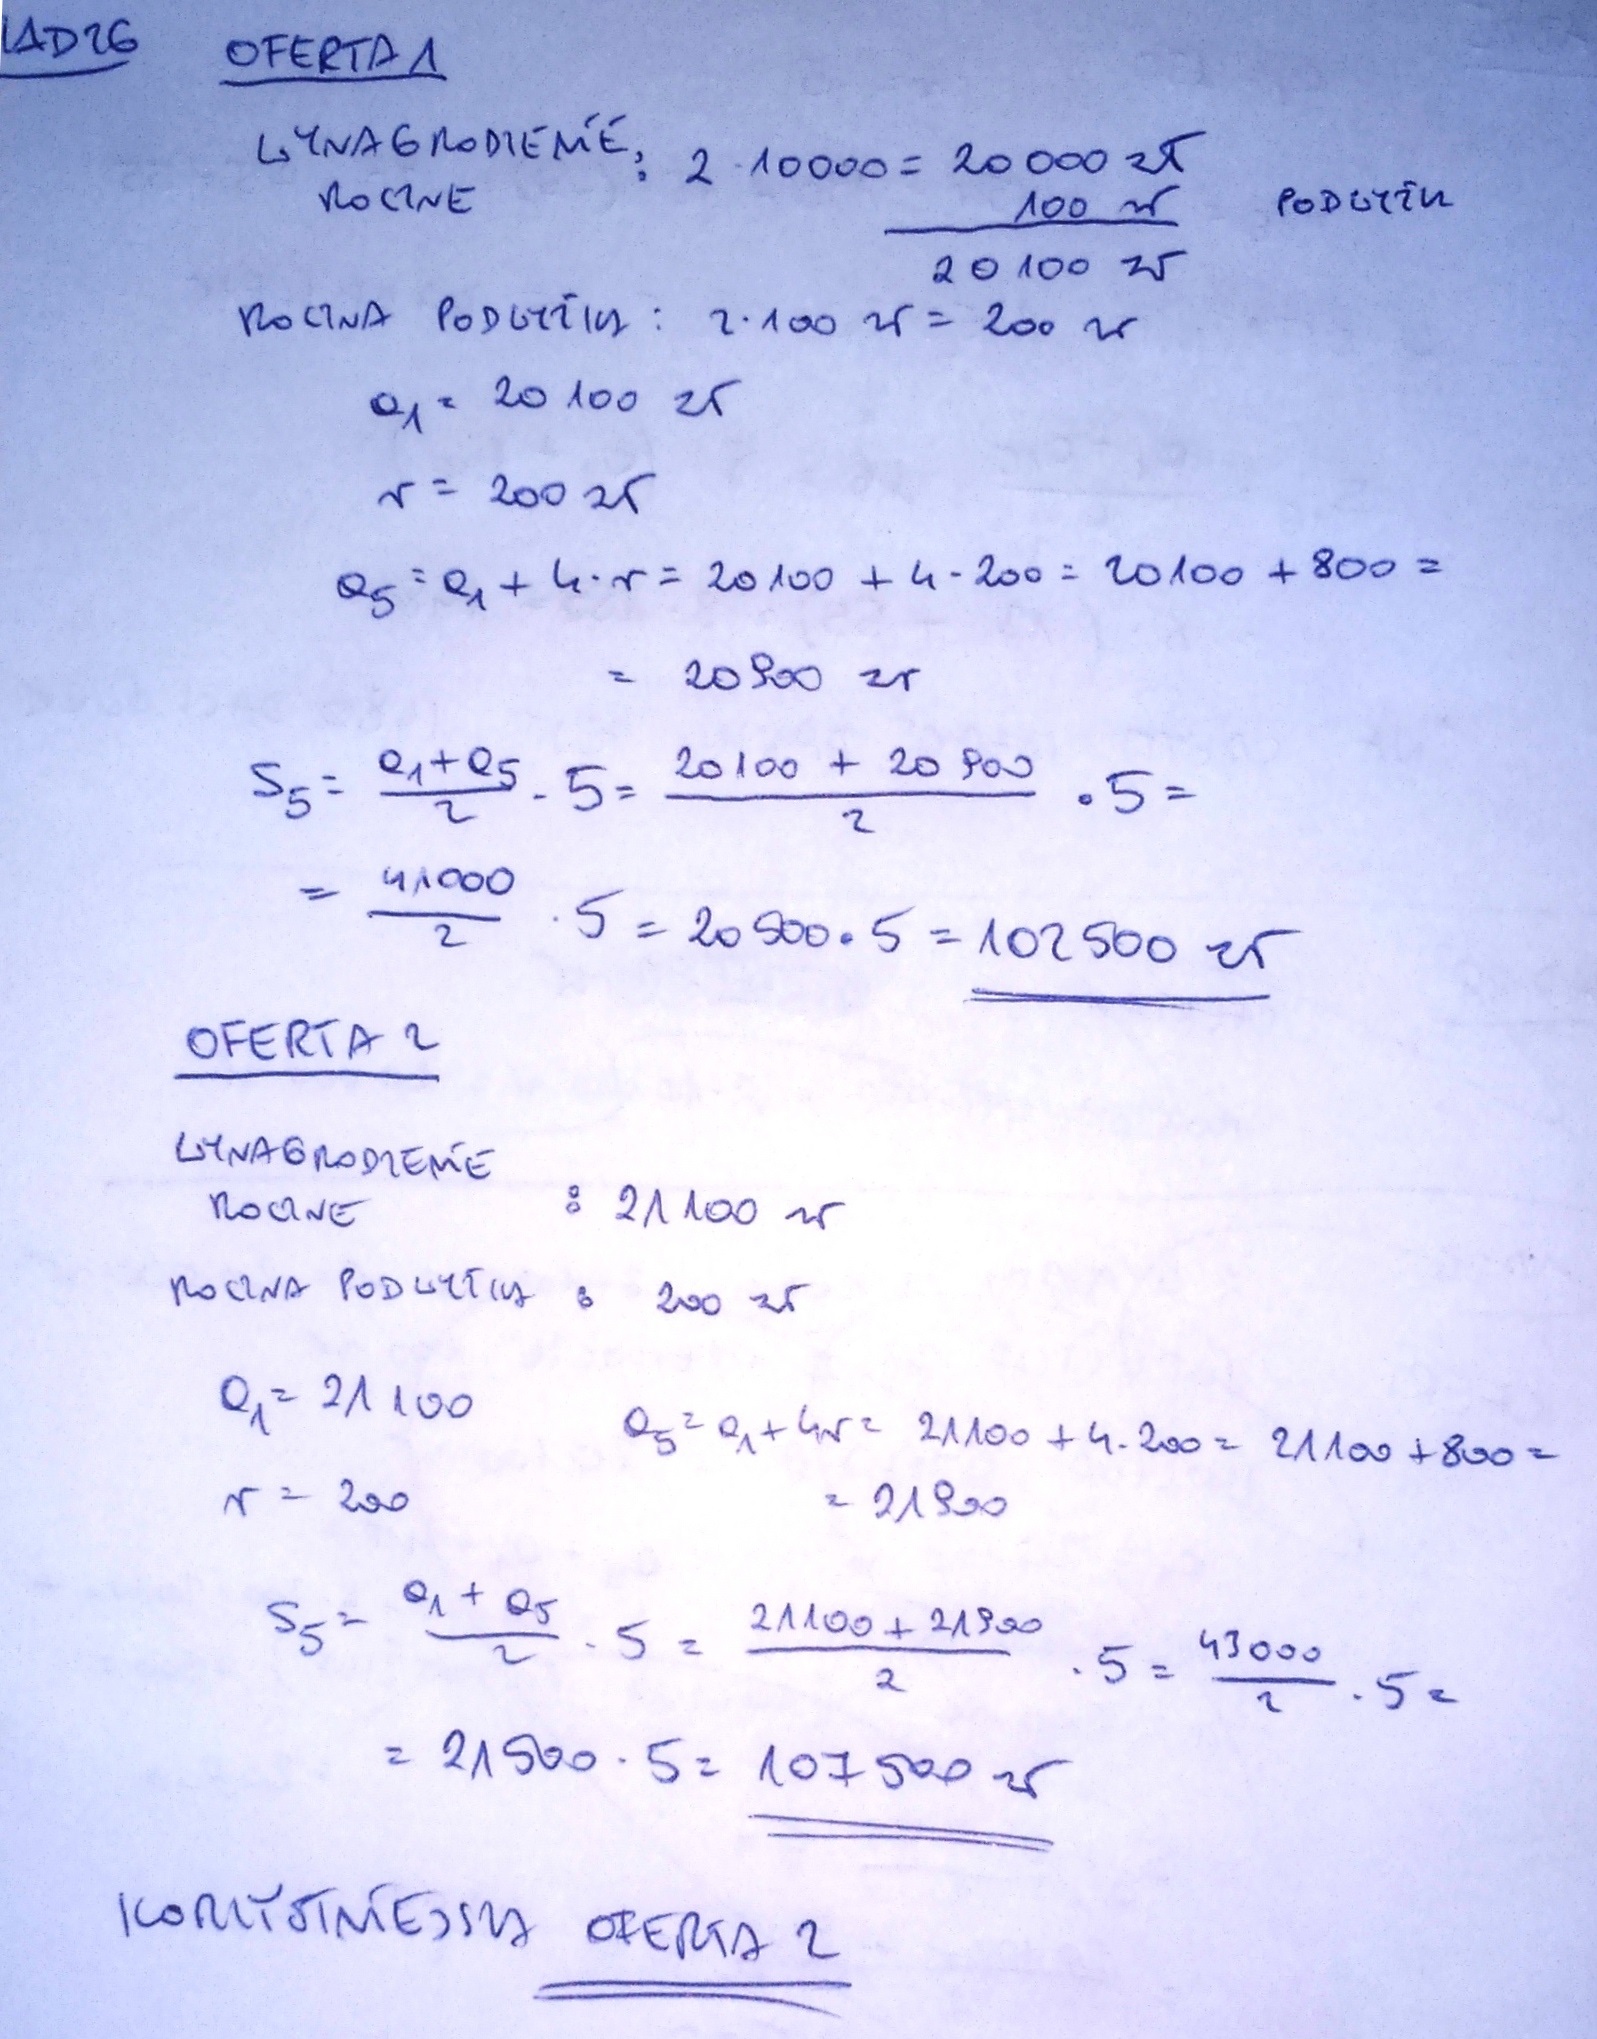 ZAD 26 OFERTA 1
WYNAGRODZENIE
ROCZNE : 2 · 10000 = 20 000 zł
100 zł PODWYŻK
20 100 zł
ROCZNA PODWYŻKA : 2 · 100 zł = 200 zł
a1 = 20 100 zł
r = 200 zł
a5 = a1 + 4 · r = 20 100 + 4 · 200 = 20 100 + 800 =
= 20 900 zł
S5 = (a1 + a5)/2 · 5 = (20 100 + 20 900)/2 · 5 =
= 41000/2 · 5 = 20 500 · 5 = 102 500 zł
OFERTA 2
WYNAGRODZENIE
ROCZNE : 21 100 zł
ROCZNA PODWYŻKA : 200 zł
a1 = 21 100
a5 = a1 + 4r = 21 100 + 4 · 200 = 21 100 + 800 =
r = 200
= 21 900
S5 = (a1 + a5)/2 · 5 = (21100 + 21900)/2 · 5 = 43000/2 · 5 =
= 21 500 · 5 = 107 500 zł
KORZYSTNIEJSZA OFERTA 2